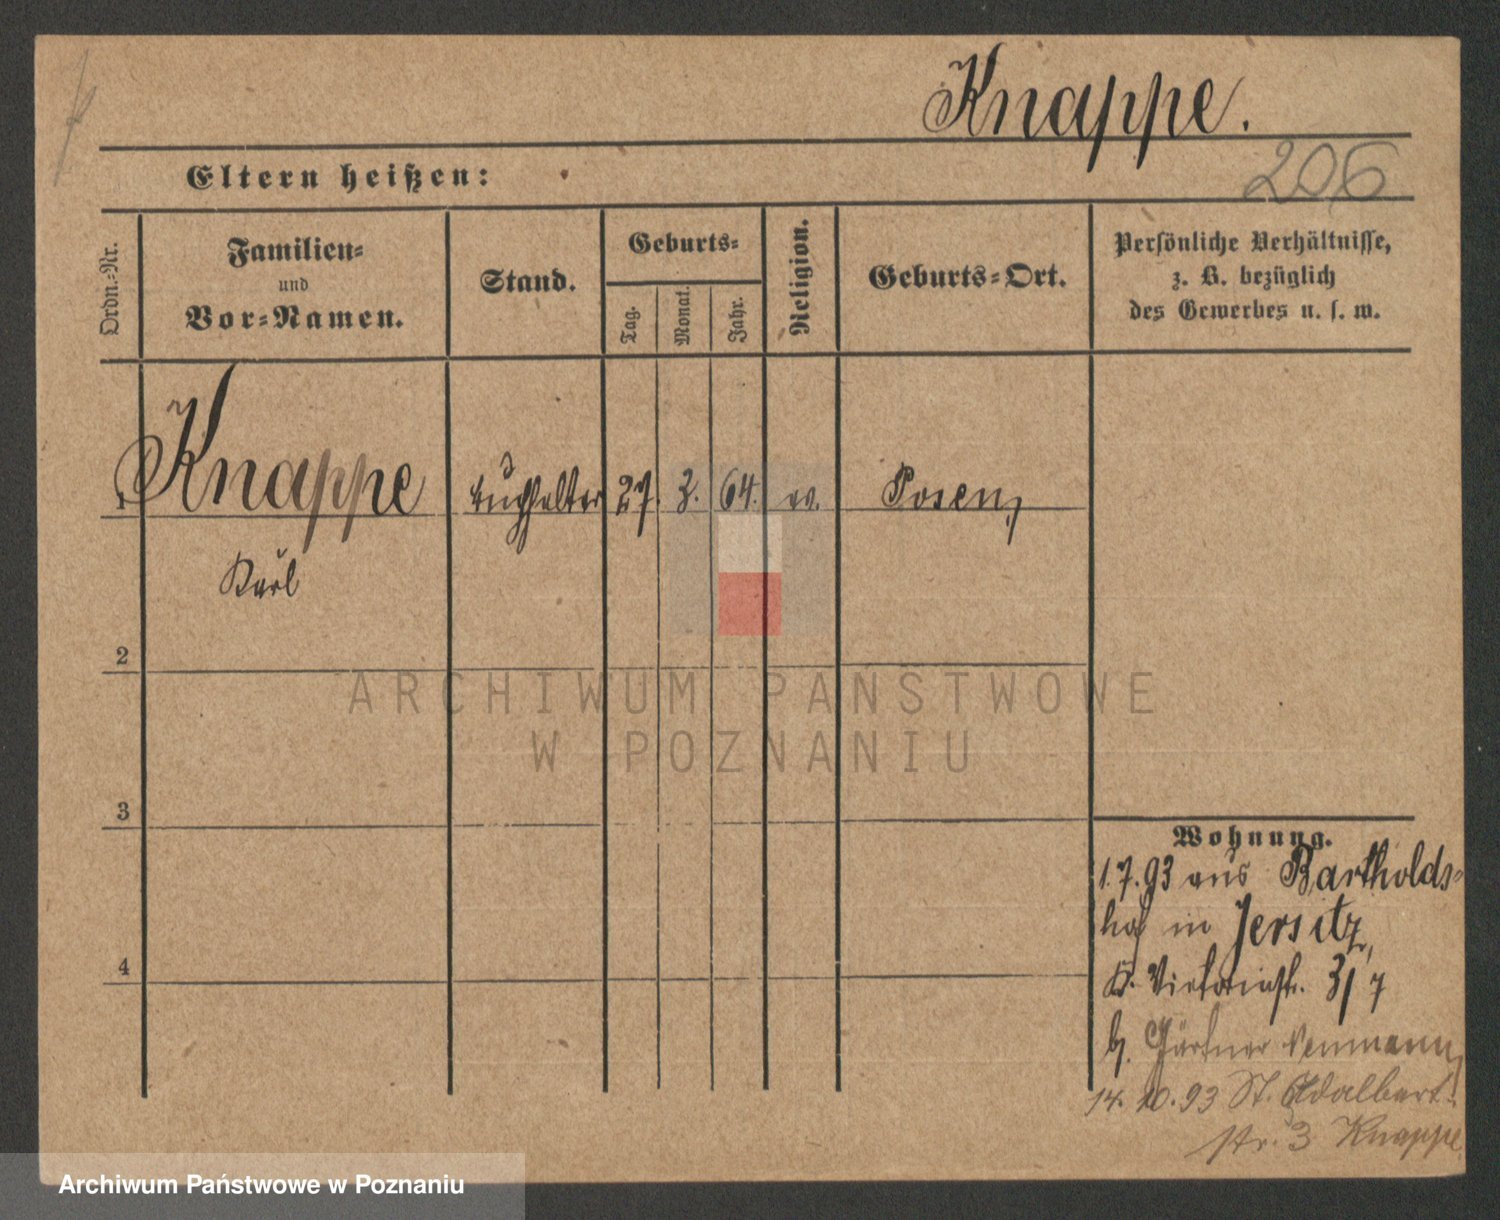 Knappe.
206
Eltern heißen:
Ordn.-Nr.
Familien-
und
Vor-Namen.
Stand.
Geburts-
Tag.
Monat.
Jahr.
Religion.
Geburts-Ort.
Persönliche Verhältnisse,
z. B. bezüglich
des Gewerbes u. s. w.
1 Knappe Buchhalter 27. 3. 64. ev. Posen,
Karl
2
ARCHIWUM PAŃSTWOWE
W POZNANIU
3
4
Wohnung.
1.7.93 aus Bartholds-
hof in Jersitz,
Kl. Victoriastr. 3/7
b. Gärtner Neumann,
14.10.93 St. Adalbert-
str. 3 Knappe
Archiwum Państwowe w Poznaniu